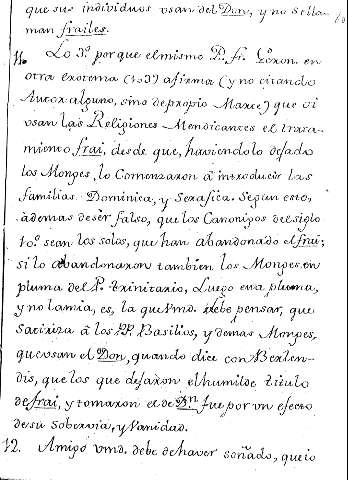 que sus individuos usan del Don, y no se lla-
man frailes.
11. Lo 3º porque el mismo P. fr. Geron. en
otra exorema (103) afirma (y no citando
Autor alguno, sino de propio Marte) que si
usan las Religiones Mendicantes el trata-
miento frai, desde que, haviendolo dejado
los Monges, lo Comenzaron â introducir las
familias Dominica, y Serafica. Segun esto,
âdemas de ser falso, que los Canonigos del siglo
10º sean los solos, que han abandonado el frai;
si lo abandonaron tambien los Monges en
pluma del P. trinitario, Luego era pluma,
y no la mia, es, la que Vmd. debe pensar, que
satiriza â los PP. Basilios, y demas Monges,
que usan el Don, quando dice con Berlen-
dis, que los que dejaron el humilde titulo
de frai, y tomaron el de Dn fue por un efecto
de su Sobervia, y Vanidad.
12. Amigo Vmd. debe de haver soñado, que io